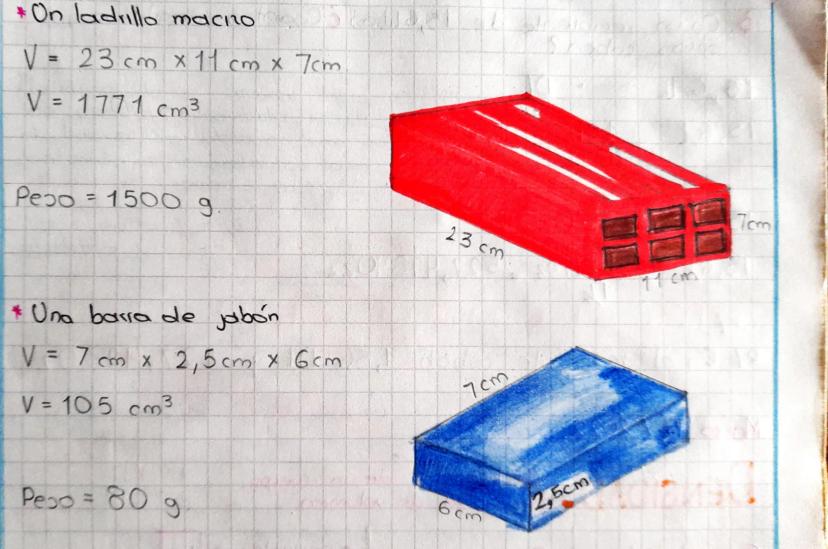 * Un ladrillo macizo
V = 23 cm x 11 cm x 7cm
V = 1771 cm³
Peso = 1500 g.
23 cm
11 cm
7cm
* Una barra de jabón
V = 7 cm x 2,5cm x 6cm
V = 105 cm³
Peso = 80 g
7cm
6cm
2,5cm